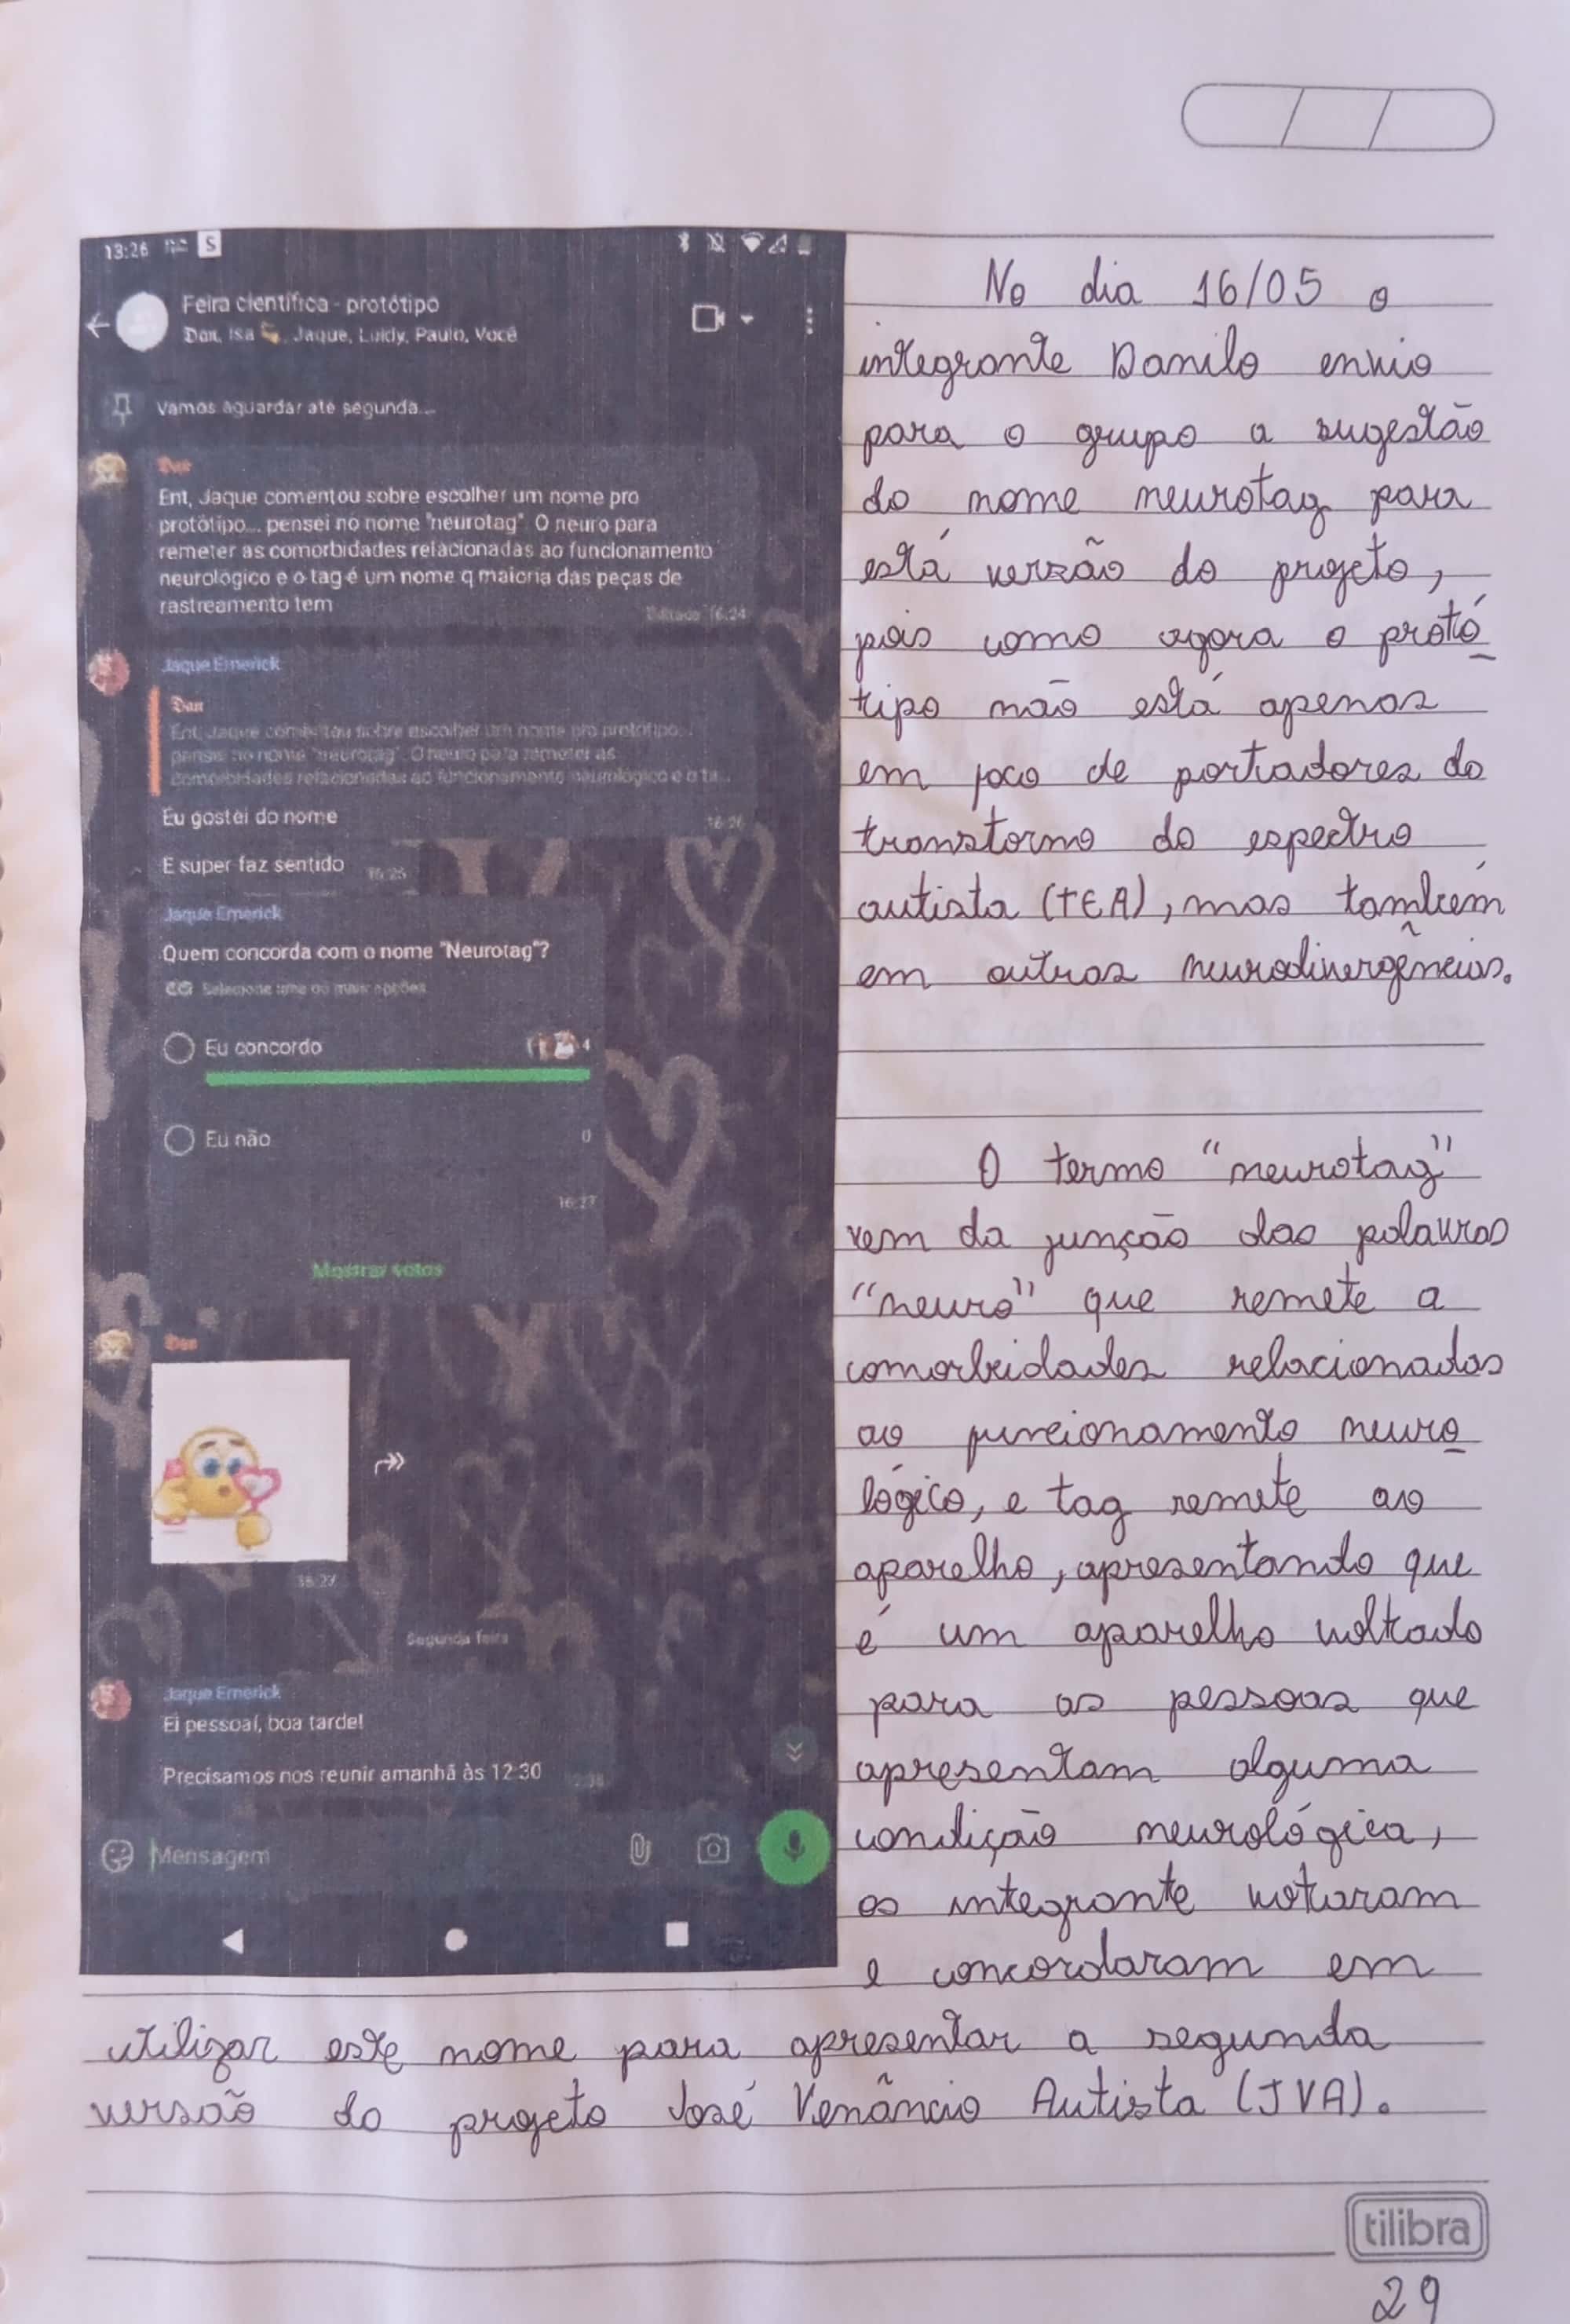 13:26 S
Feira científica - protótipo
Dan, Isa, Jaque, Luidy, Paulo, Você
Vamos aguardar até segunda...
Dan
Ent, Jaque comentou sobre escolher um nome pro
protótipo... pensei no nome "neurotag". O neuro para
remeter as comorbidades relacionadas ao funcionamento
neurológico e o tag é um nome q maioria das peças de
rastreamento tem
Editado 16:24
Jaque Emerick
Dan
Ent, Jaque comentou sobre escolher um nome pro protótipo...
pensei no nome "neurotag". O neuro para remeter as
comorbidades relacionadas ao funcionamento neurológico e o ta...
Eu gostei do nome
16:26
E super faz sentido
Jaque Emerick
Quem concorda com o nome "Neurotag"?
Selecione uma ou mais opções
Eu concordo 4
Eu não 0
16:27
Mostrar votos
Dan
16:27
Segunda-feira
Jaque Emerick
Ei pessoal, boa tarde!
Precisamos nos reunir amanhã às 12:30
Mensagem
No dia 16/05 o
integrante Danilo envio
para o grupo a sugestão
do nome neurotag para
está versão do projeto,
pois como agora o protó
tipo não está apenas
em foco de portadores do
transtorno do espectro
autista (TEA), mas também
em outras neurodivergências.
O termo "neurotag"
vem da junção das palavras
"neuro" que remete a
comorbidades relacionadas
ao funcionamento neuro
lógico, e tag remete ao
aparelho, apresentando que
é um aparelho voltado
para as pessoas que
apresentam alguma
condição neurológica,
os integrante votaram
e concordaram em
utilizar este nome para apresentar a segunda
versão do projeto José Venâncio Autista (JVA).
tilibra
29